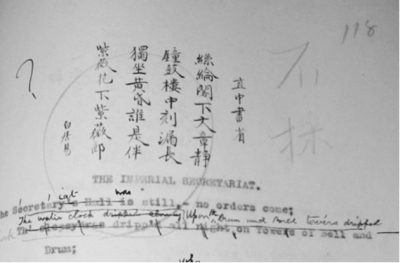 118
?
直中書省
絲綸閣下文章靜
鐘鼓樓中刻漏長
獨坐黃昏誰是伴
紫薇花下紫薇郎
白居易
THE IMPERIAL SECRETARIAT.
was
he Secretary's Hall is still,- no orders come;
The water clock dripped slowly Upon the Drum and Bell towers dripped
dripp'd all night, on Towers of Bell and
Drum;